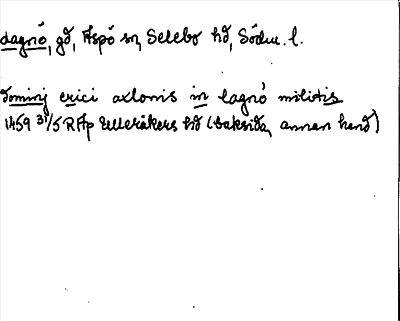 Lagnö, gd, Aspö sn, Selebo hd, Södm. l.
dominj erici axlonis in lagnö militis
1459 31/5 RAp Ulleråkers hd (baksida, annan hand)